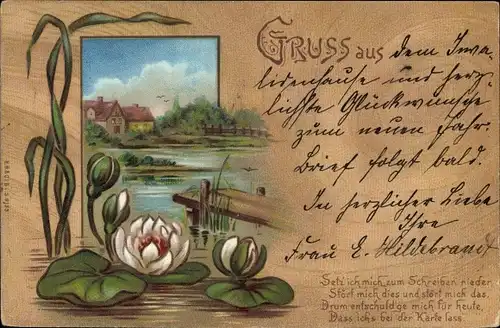 GRUSS aus dem Inva-
lidenhause und herz-
lichste Glückwünsche
zum neuen Jahr.
Brief folgt bald.
In herzlicher Liebe
Ihre
Frau E. Hildebrandt
Setz' ich mich zum Schreiben nieder
Stört mich dies und stört mich das.
Drum entschuld'ge mich für heute,
Dass ich's bei der Karte lass.